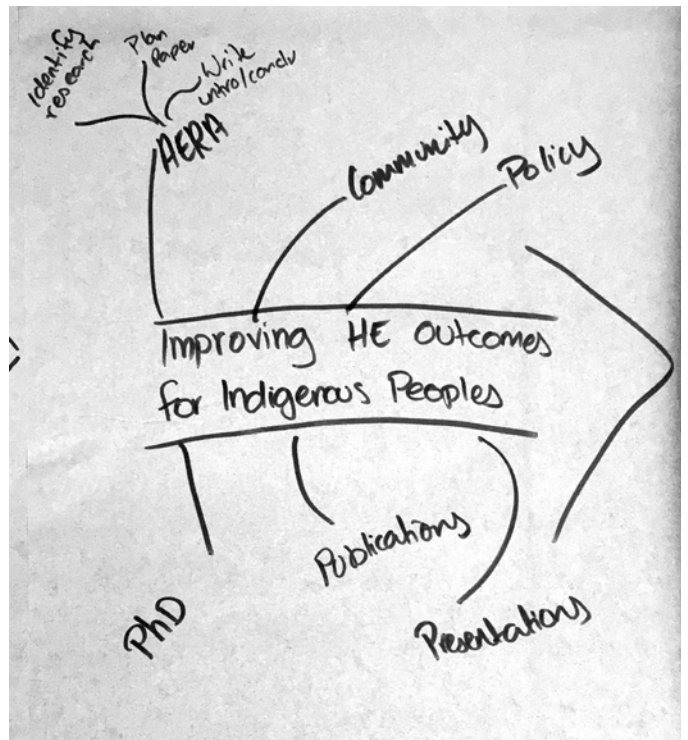 Identify
research
Plan
Paper
Write
AERA
Community
Policy
Improving HE outcomes
for Indigenous Peoples
Publications
PhD
Presentations